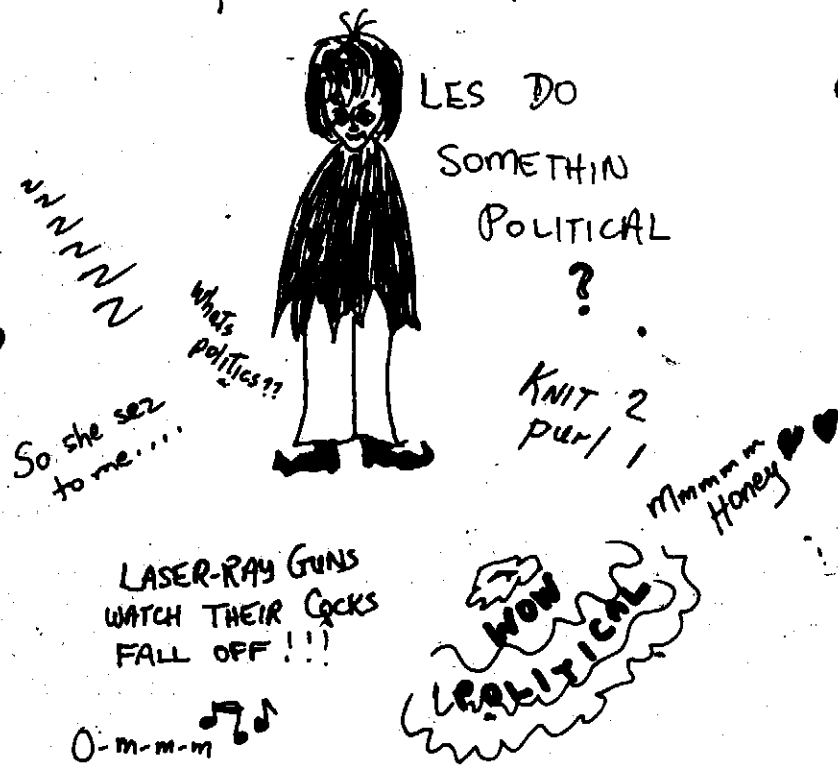 LES DO
SOMETHIN
POLITICAL
?
zzzzzz
Whats
politics??
So she sez
to me....
KNIT 2
purl 1
Mmmmm
Honey
LASER-RAY GUNS
WATCH THEIR COCKS
FALL OFF!!!
WOW
POLITICAL
O-m-m-m